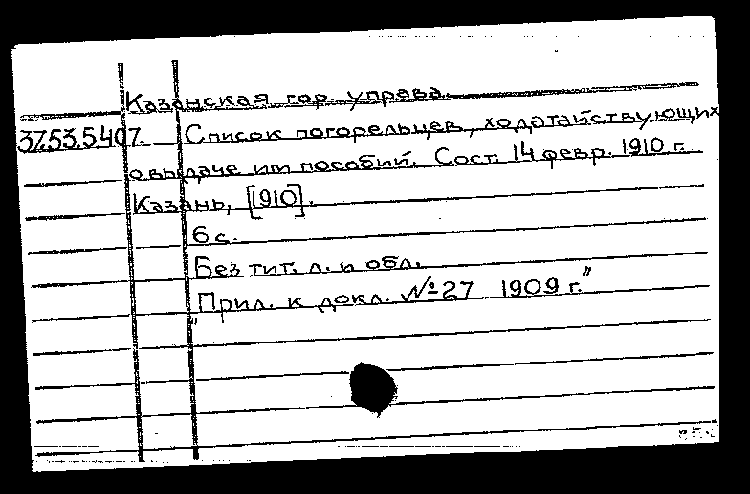 Казанская гор. управа.
37.53.5.407. Список погорельцев, ходатайствующих
о выдаче им пособий. Сост. 14 февр. 1910 г.
Казань, [910].
6 с.
Без тит. л. и обл.
"Прил. к докл. № 27 1909 г."